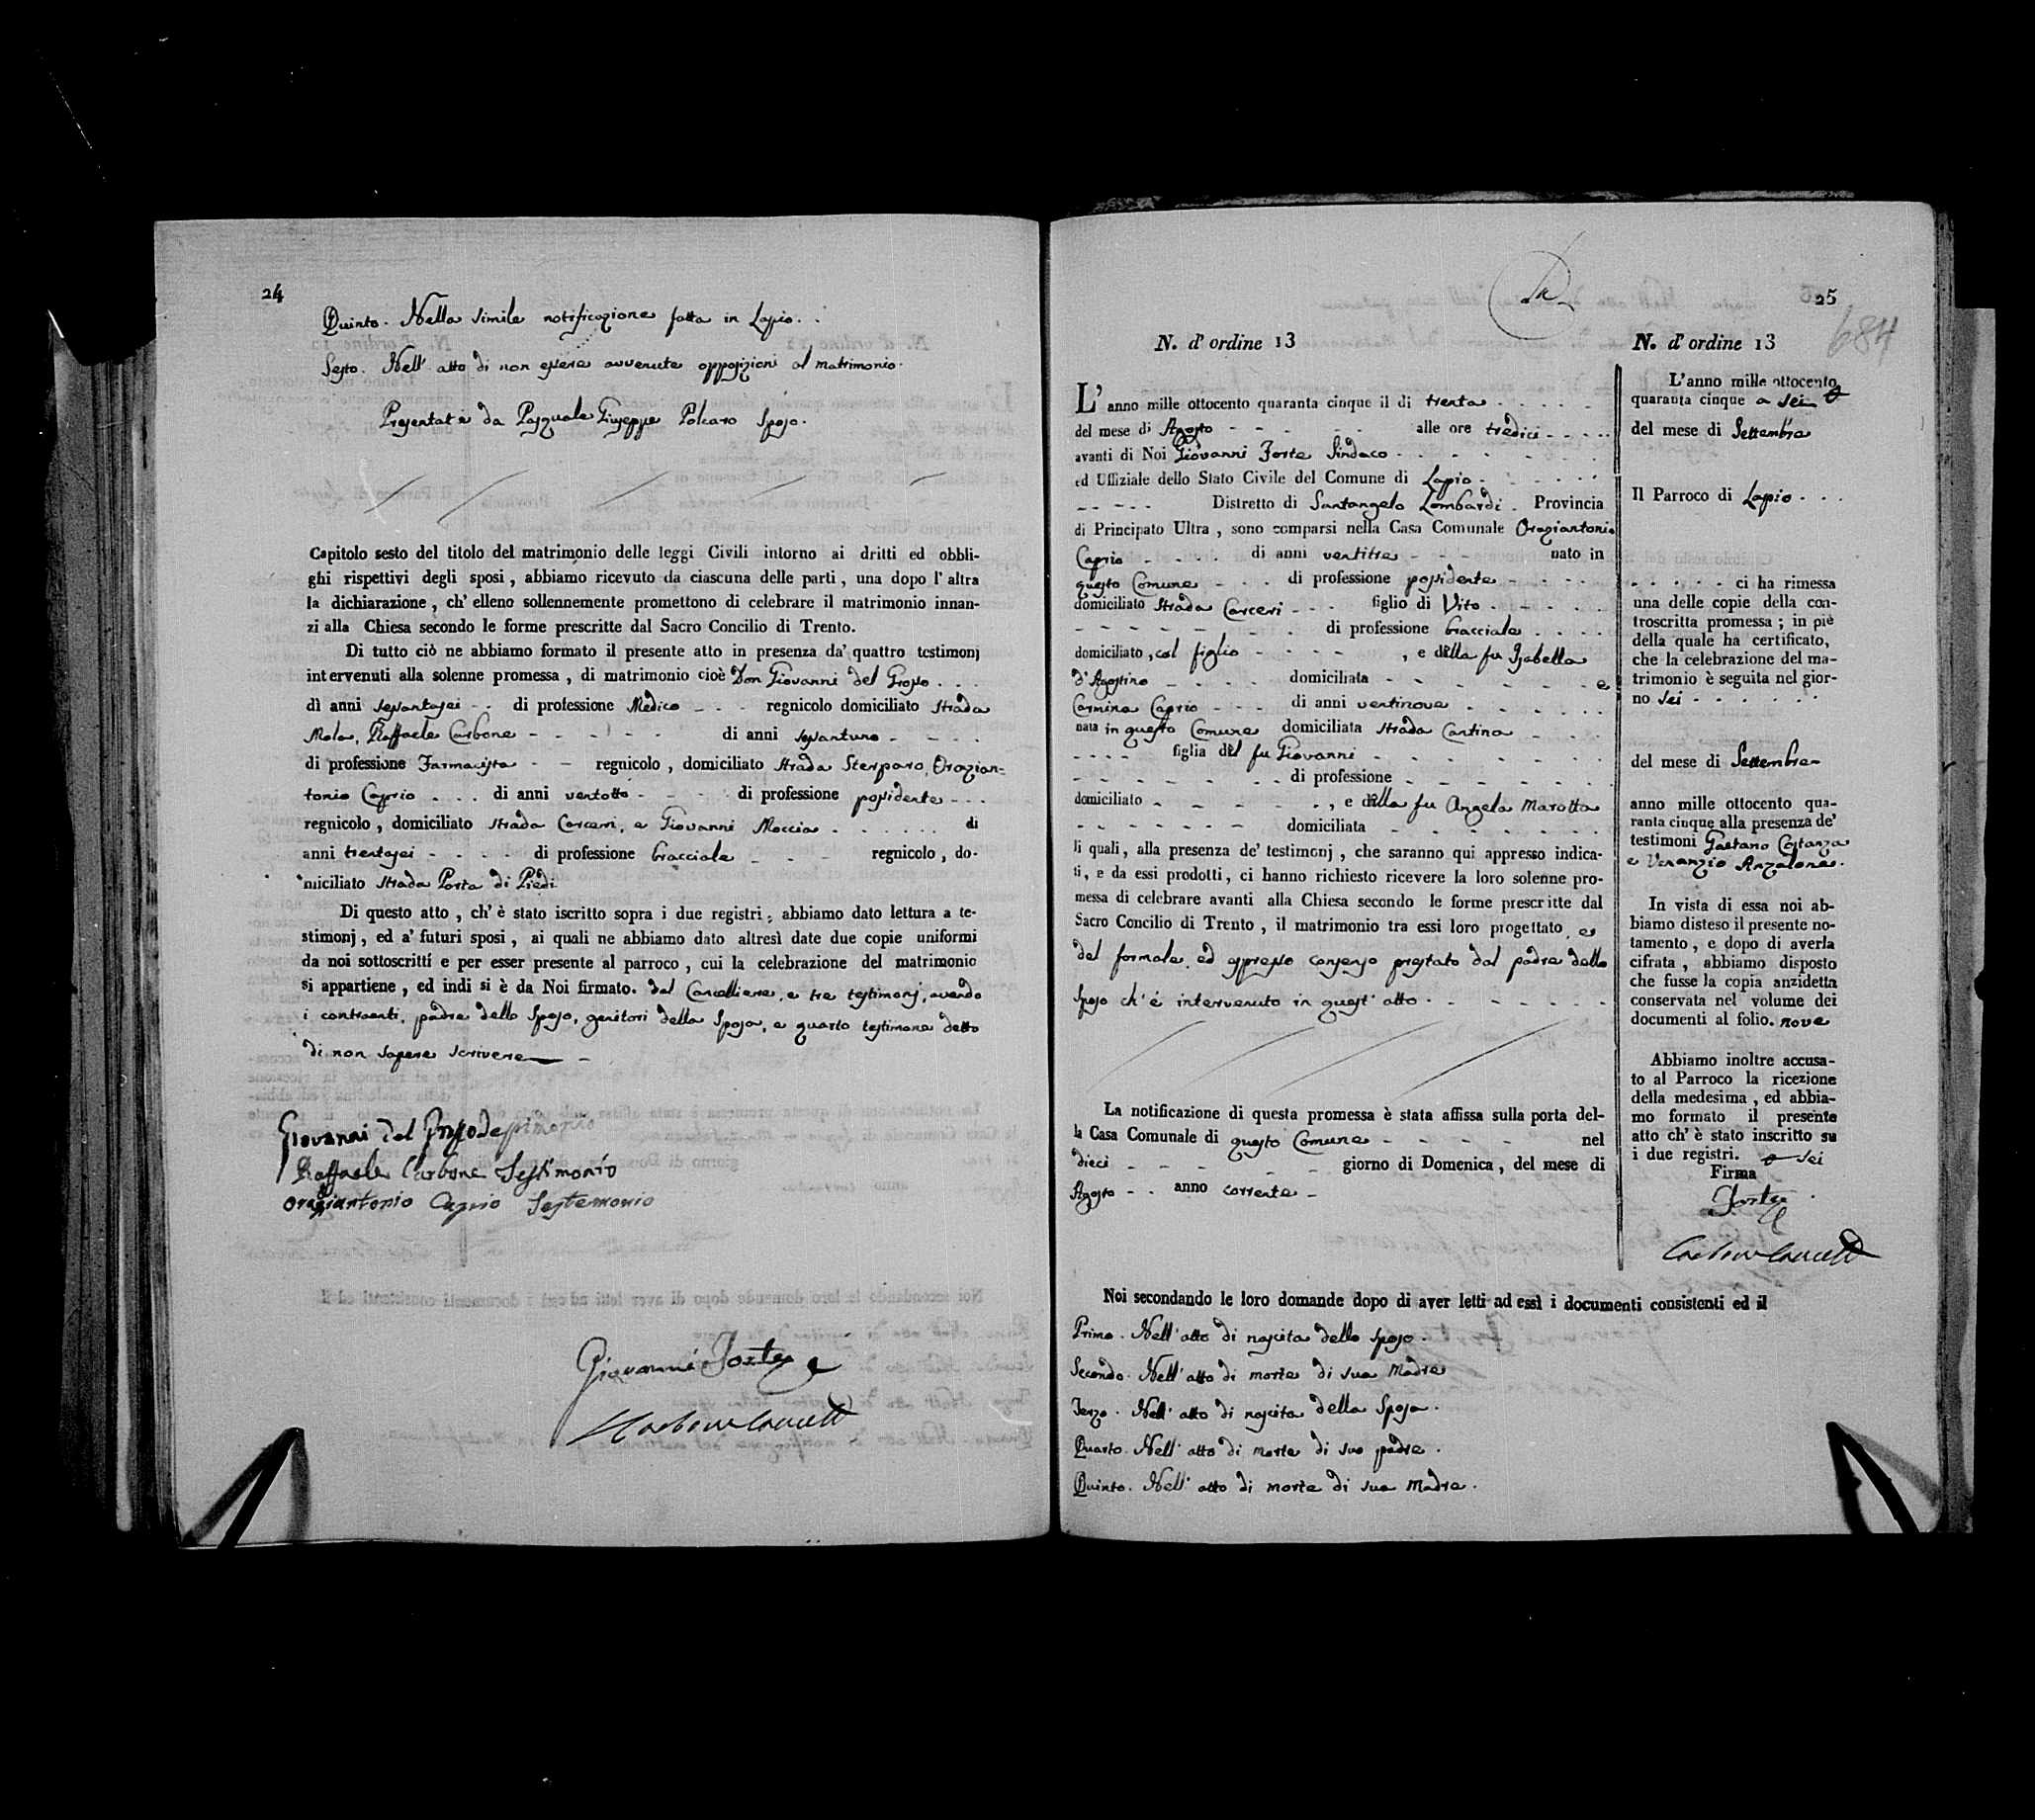 24
Quinto. Nella simile notificazione fatta in Lapio.
Sesto. Nell' atto di non essere avvenute opposizioni al matrimonio.
Presentate da Pasquale Giuseppe Polcaro Sposo.
Capitolo sesto del titolo del matrimonio delle leggi Civili intorno ai dritti ed obbli-
ghi rispettivi degli sposi, abbiamo ricevuto da ciascuna delle parti, una dopo l'altra
la dichiarazione, ch'elleno sollennemente promettono di celebrare il matrimonio innan-
zi alla Chiesa secondo le forme prescritte dal Sacro Concilio di Trento.
Di tutto ciò ne abbiamo formato il presente atto in presenza da' quattro testimonj
intervenuti alla solenne promessa, di matrimonio cioè Don Giovanni del Grosso
dì anni sessantasei di professione Medico regnicolo domiciliato Strada
Mola, Raffaele Carbone di anni sessantuno
di professione Farmacista regnicolo, domiciliato Strada Sterparo, Orazian-
tonio Caprio di anni ventotto di professione possidente
regnicolo, domiciliato Strada Carceri, e Giovanni Moccia di
anni trentasei di professione bracciale regnicolo, do-
miciliato Strada Porta di Piedi
Di questo atto, ch'è stato iscritto sopra i due registri, abbiamo dato lettura a te-
stimonj, ed a' futuri sposi, ai quali ne abbiamo dato altresì date due copie uniformi
da noi sottoscritti e per esser presente al parroco, cui la celebrazione del matrimonio
si appartiene, ed indi si è da Noi firmato. dal Cancelliere, e tre testimonj, avendo
i contraenti, padre dello Sposo, genitori della Sposa, e quarto testimone detto
di non sapere scrivere
Giovanni del Grosso
Raffaele Carbone Testimonio
Oraziantonio Caprio Testemonio
Giovanni Forte
25
684
N. d'ordine 13
L'anno mille ottocento quaranta cinque il di trenta
del mese di Agosto alle ore tredici
avanti di Noi Giovanni Forte Sindaco
ed Uffiziale dello Stato Civile del Comune di Lapio
Distretto di Santangelo Lombardi. Provincia
di Principato Ultra, sono comparsi nella Casa Comunale Oraziantonio
Caprio di anni ventitre nato in
questo Comune di professione possidente
domiciliato Strada Carceri figlio di Vito
di professione bracciale
domiciliato, col figlio, e della fu Isabella
d'Agostino domiciliata e
Carmina Caprio di anni ventinove
nata in questo Comune domiciliata Strada Cantina
figlia del fu Giovanni
di professione
domiciliato, e della fu Angela Marotta
domiciliata
li quali, alla presenza de' testimonj, che saranno qui appresso indica-
ti, e da essi prodotti, ci hanno richiesto ricevere la loro solenne pro-
messa di celebrare avanti alla Chiesa secondo le forme prescritte dal
Sacro Concilio di Trento, il matrimonio tra essi loro progettato, e
del formale, ed espresso consenso prestato dal padre dello
Sposo ch'è intervenuto in quest'atto.
La notificazione di questa promessa è stata affissa sulla porta del-
la Casa Comunale di questo Comune nel
dieci giorno di Domenica, del mese di
Agosto anno corrente
N. d'ordine 13
L'anno mille ottocento
quaranta cinque a sei
del mese di Settembre
Il Parroco di Lapio
ci ha rimessa
una delle copie della con-
troscritta promessa; in piè
della quale ha certificato,
che la celebrazione del ma-
trimonio è seguita nel gior-
no sei
del mese di Settembre
anno mille ottocento qua-
ranta cinque alla presenza de'
testimoni Gaetano Costanza
e Venanzio Anzalone.
In vista di essa noi ab-
biamo disteso il presente no-
tamento, e dopo di averla
cifrata, abbiamo disposto
che fusse la copia anzidetta
conservata nel volume dei
documenti al folio. nove
Abbiamo inoltre accusa-
to al Parroco la ricezione
della medesima, ed abbia-
mo formato il presente
atto ch'è stato inscritto su
i due registri. sei
Firma
Forte
Noi secondando le loro domande dopo di aver letti ad essi i documenti consistenti ed il
Primo. Nell'atto di nascita dello Sposo.
Secondo. Nell'atto di morte di sua Madre
Terzo. Nell'atto di nascita della Sposa.
Quarto. Nell'atto di morte di suo padre.
Quinto. Nell'atto di morte di sua Madre.